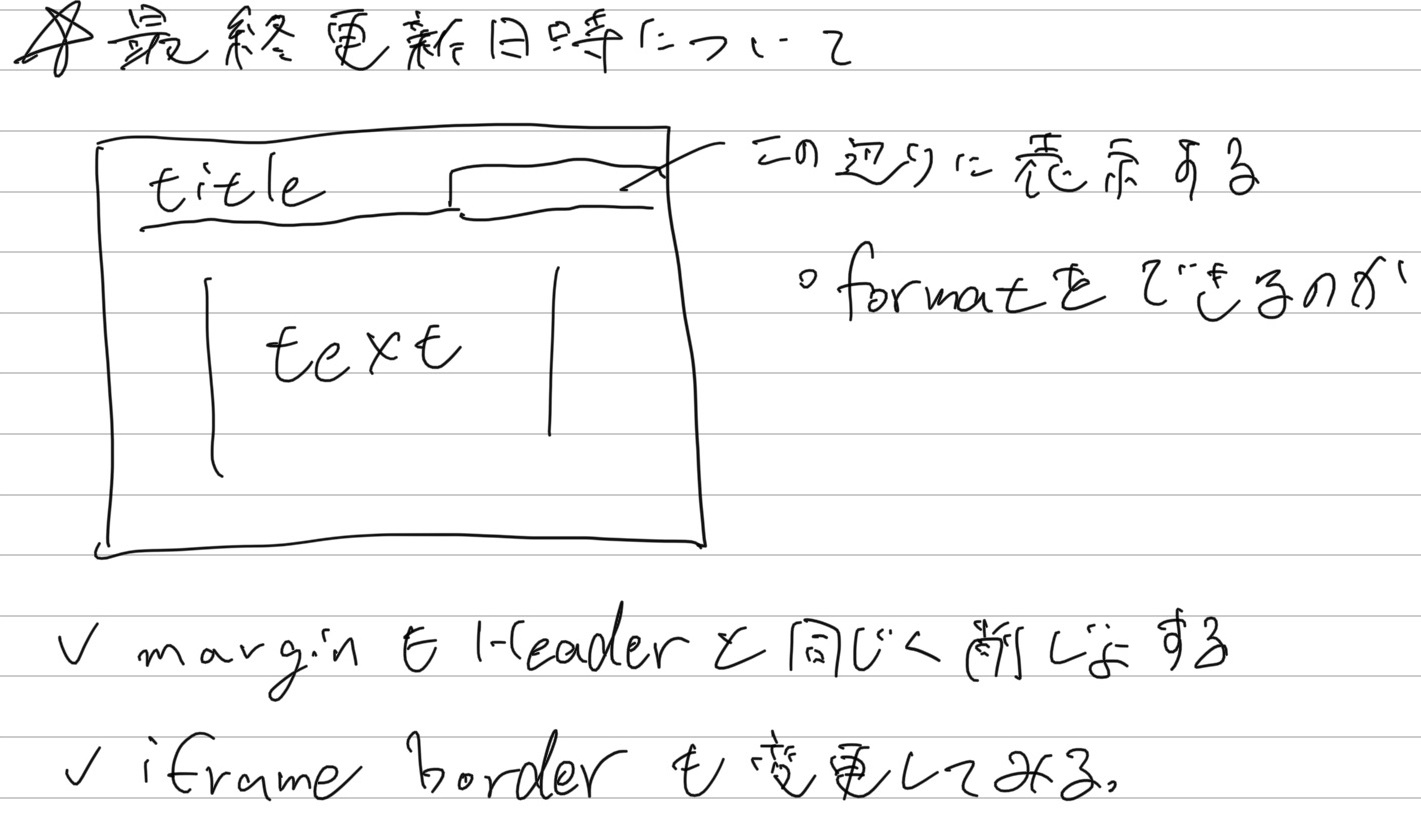 ☆最終更新日時について
title
この辺りに表示する
。formatをできるのか
text
✓ marginもHeaderと同じく削じょする
✓ iframe borderも変更してみる。